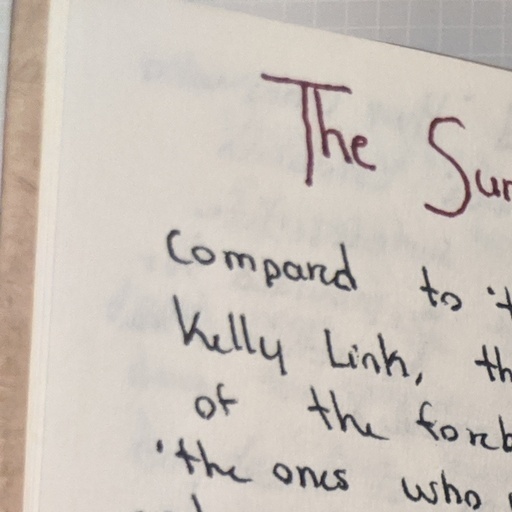 The Sur
Compared to 't
Kelly Link, th
of the foreb
'the ones who